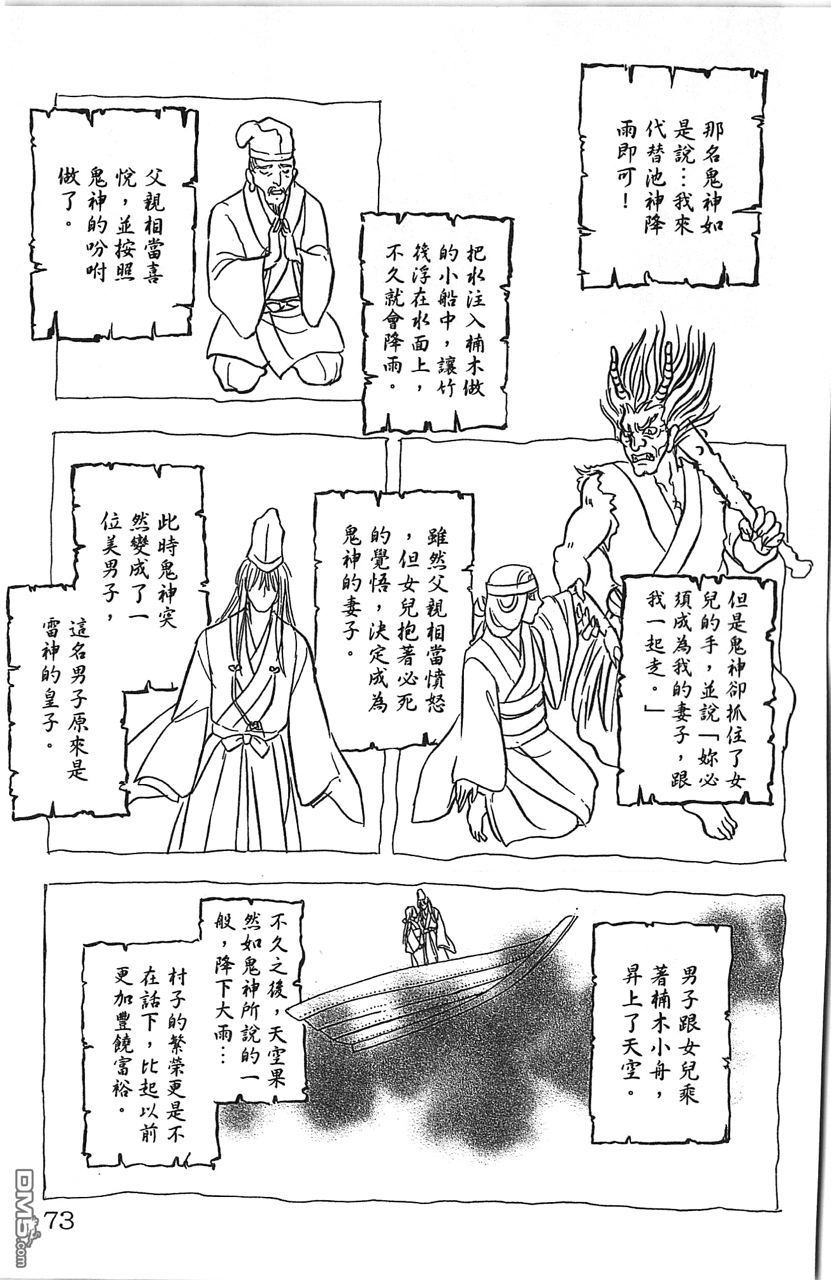 那名鬼神如
是說…我來
代替池神降
雨即可！
把水注入楠木做
的小船中，讓竹
筏浮在水面上，
不久就會降雨。
父親相當喜
悅，並按照
鬼神的吩咐
做了。
但是鬼神卻抓住了女
兒的手，並說「妳必
須成為我的妻子，跟
我一起走。」
雖然父親相當憤怒
，但女兒抱著必死
的覺悟，決定成為
鬼神的妻子。
此時鬼神突
然變成了一
位美男子，
這名男子原來是
雷神的皇子。
男子跟女兒乘
著楠木小舟，
昇上了天空。
不久之後，天空果
然如鬼神所說的一
般，降下大雨…
村子的繁榮更是不
在話下，比起以前
更加豐饒富裕。
73
DM5.com